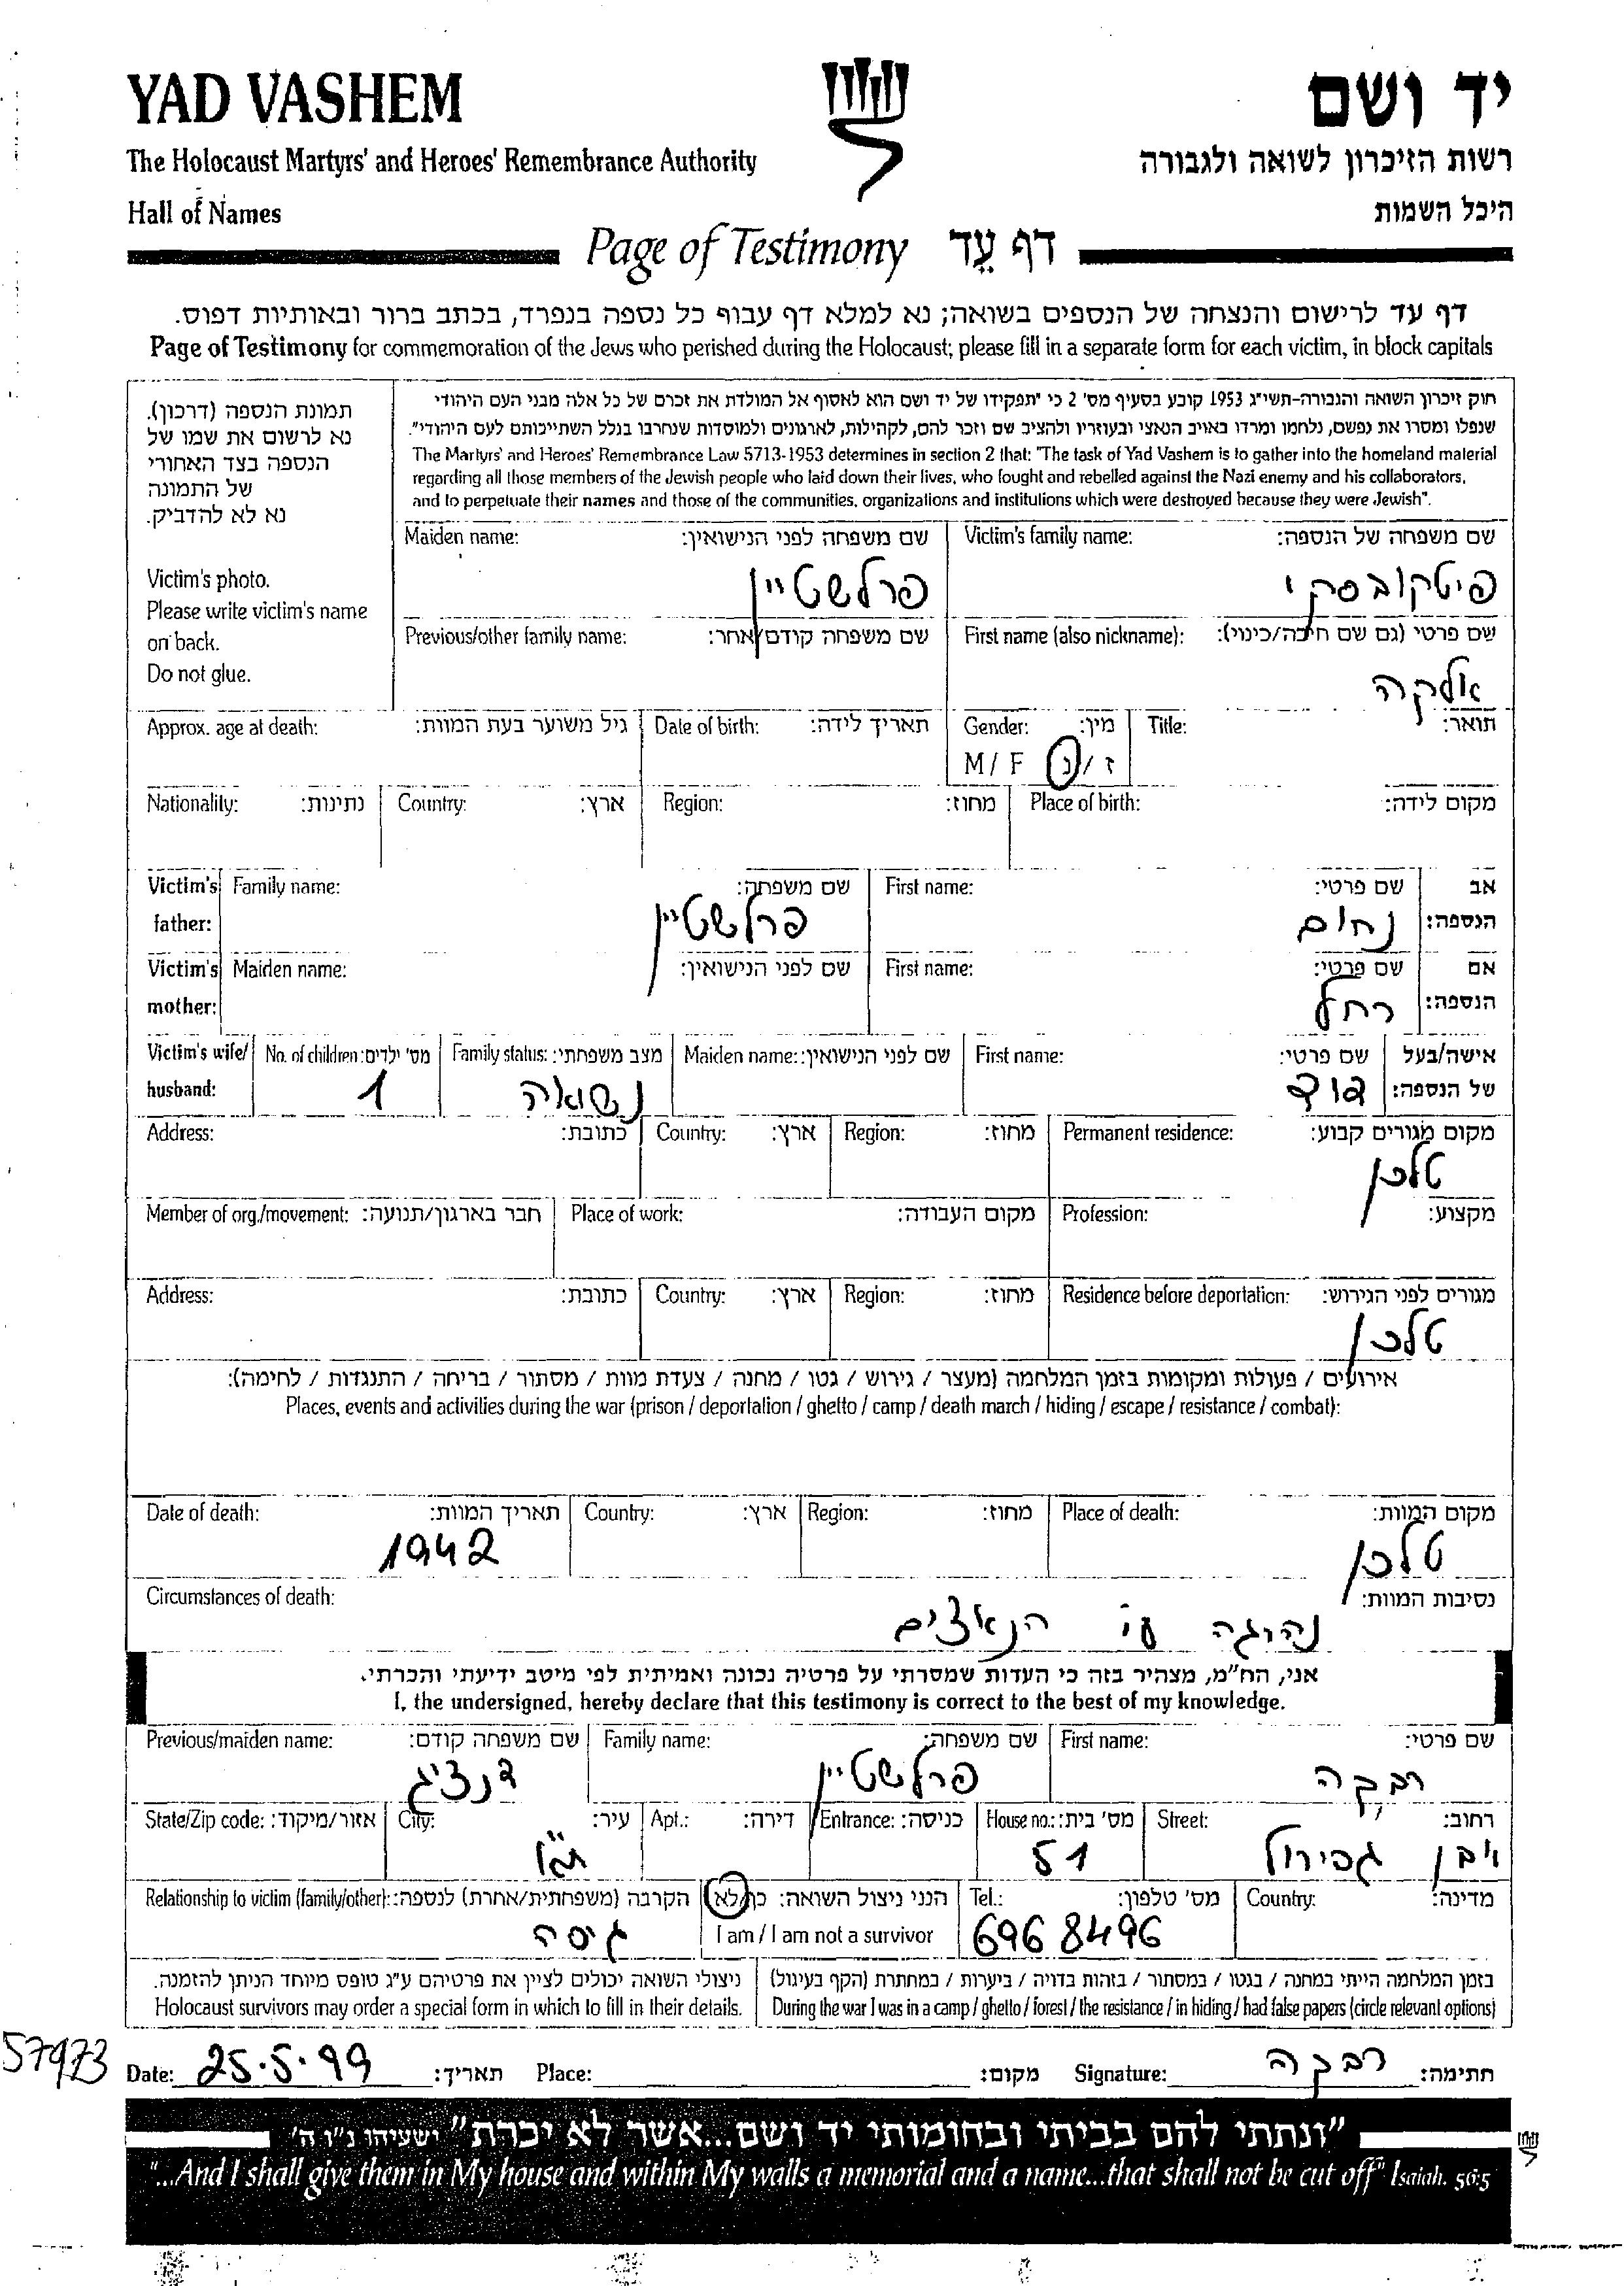 YAD VASHEM
יד ושם
The Holocaust Martyrs' and Heroes' Remembrance Authority
רשות הזיכרון לשואה ולגבורה
Hall of Names
היכל השמות
Page of Testimony דף עֵד
דף עד לרישום והנצחה של הנספים בשואה; נא למלא דף עבוף כל נספה בנפרד, בכתב ברור ובאותיות דפוס.
Page of Testimony for commemoration of the Jews who perished during the Holocaust; please fill in a separate form for each victim, in block capitals
תמונת הנספה (דרכון).
נא לרשום את שמו של
הנספה בצד האחורי
של התמונה
נא לא להדביק.
Victim's photo.
Please write victim's name
on back.
Do not glue.
חוק זיכרון השואה והגבורה-תשי"ג 1953 קובע בסעיף מס' 2 כי "תפקידו של יד ושם הוא לאסוף אל המולדת את זכרם של כל אלה מבני העם היהודי
שנפלו ומסרו את נפשם, נלחמו ומרדו באויב הנאצי ובעוזריו ולהציב שם וזכר להם, לקהילות, לארגונים ולמוסדות שנחרבו בגלל השתייכותם לעם היהודי".
The Martyrs' and Heroes' Remembrance Law 5713-1953 determines in section 2 that: "The task of Yad Vashem is to gather into the homeland material
regarding all those members of the Jewish people who laid down their lives, who fought and rebelled against the Nazi enemy and his collaborators,
and to perpetuate their names and those of the communities, organizations and institutions which were destroyed because they were Jewish".
Victim's family name: שם משפחה של הנספה: Maiden name: שם משפחה לפני הנישואין:
פיטקובסקי פרלשטיין
First name (also nickname): שם פרטי (גם שם חיבה/כינוי): Previous/other family name: שם משפחה קודם/אחר:
אלקה
Title: תואר: Gender: מין: Date of birth: תאריך לידה: Approx. age at death: גיל משוער בעת המוות:
M / F ז / נ
Place of birth: מקום לידה: Region: מחוז: Country: ארץ: Nationality: נתינות:
Victim's father: אב הנספה: First name: שם פרטי: Family name: שם משפחה:
נחום פרלשטיין
Victim's mother: אם הנספה: First name: שם פרטי: Maiden name: שם לפני הנישואין:
רחל
Victim's wife/ husband: אישה/בעל של הנספה: First name: שם פרטי: Maiden name: שם לפני הנישואין: Family status: מצב משפחתי: No. of children: מס' ילדים:
נשואה 1
Permanent residence: מקום מגורים קבוע: Region: מחוז: Country: ארץ: Address: כתובת:
טלכן
Profession: מקצוע: Place of work: מקום העבודה: Member of org./movement: חבר בארגון/תנועה:
Residence before deportation: מגורים לפני הגירוש: Region: מחוז: Country: ארץ: Address: כתובת:
טלכן
אירועים / פעולות ומקומות בזמן המלחמה (מעצר / גירוש / גטו / מחנה / צעדת מוות / מסתור / בריחה / התנגדות / לחימה):
Places, events and activities during the war (prison / deportation / ghetto / camp / death march / hiding / escape / resistance / combat):
Place of death: מקום המוות: Region: מחוז: Country: ארץ: Date of death: תאריך המוות:
טלכן 1942
Circumstances of death: נסיבות המוות:
נהרגה ע"י הנאצים
אני, הח"מ, מצהיר בזה כי העדות שמסרתי על פרטיה נכונה ואמיתית לפי מיטב ידיעתי והכרתי.
I, the undersigned, hereby declare that this testimony is correct to the best of my knowledge.
First name: שם פרטי: Family name: שם משפחה: Previous/maiden name: שם משפחה קודם:
רבקה פרלשטיין דנציג
Street: רחוב: House no.: מס' בית: Entrance: כניסה: Apt.: דירה: City: עיר: State/Zip code: אזור/מיקוד:
אבן גבירול 51 ת"א
Country: מדינה: Tel.: מס' טלפון: הנני ניצול השואה: כן/לא Relationship to victim (family/other): הקרבה (משפחתית/אחרת) לנספה:
6968496 I am / I am not a survivor גיסה
בזמן המלחמה הייתי במחנה / בגטו / במסתור / בזהות בדויה / ביערות / במחתרת (הקף בעיגול)
During the war I was in a camp / ghetto / forest / the resistance / in hiding / had false papers (circle relevant options)
ניצולי השואה יכולים לציין את פרטיהם ע"ג טופס מיוחד הניתן להזמנה.
Holocaust survivors may order a special form in which to fill in their details.
57973
Date: 25.5.99 תאריך: Place: מקום: Signature: רבקה חתימה:
"ונתתי להם בביתי ובחומותי יד ושם...אשר לא יכרת" ישעיהו נ"ו ה'
"...And I shall give them in My house and within My walls a memorial and a name...that shall not be cut off" Isaiah. 56:5